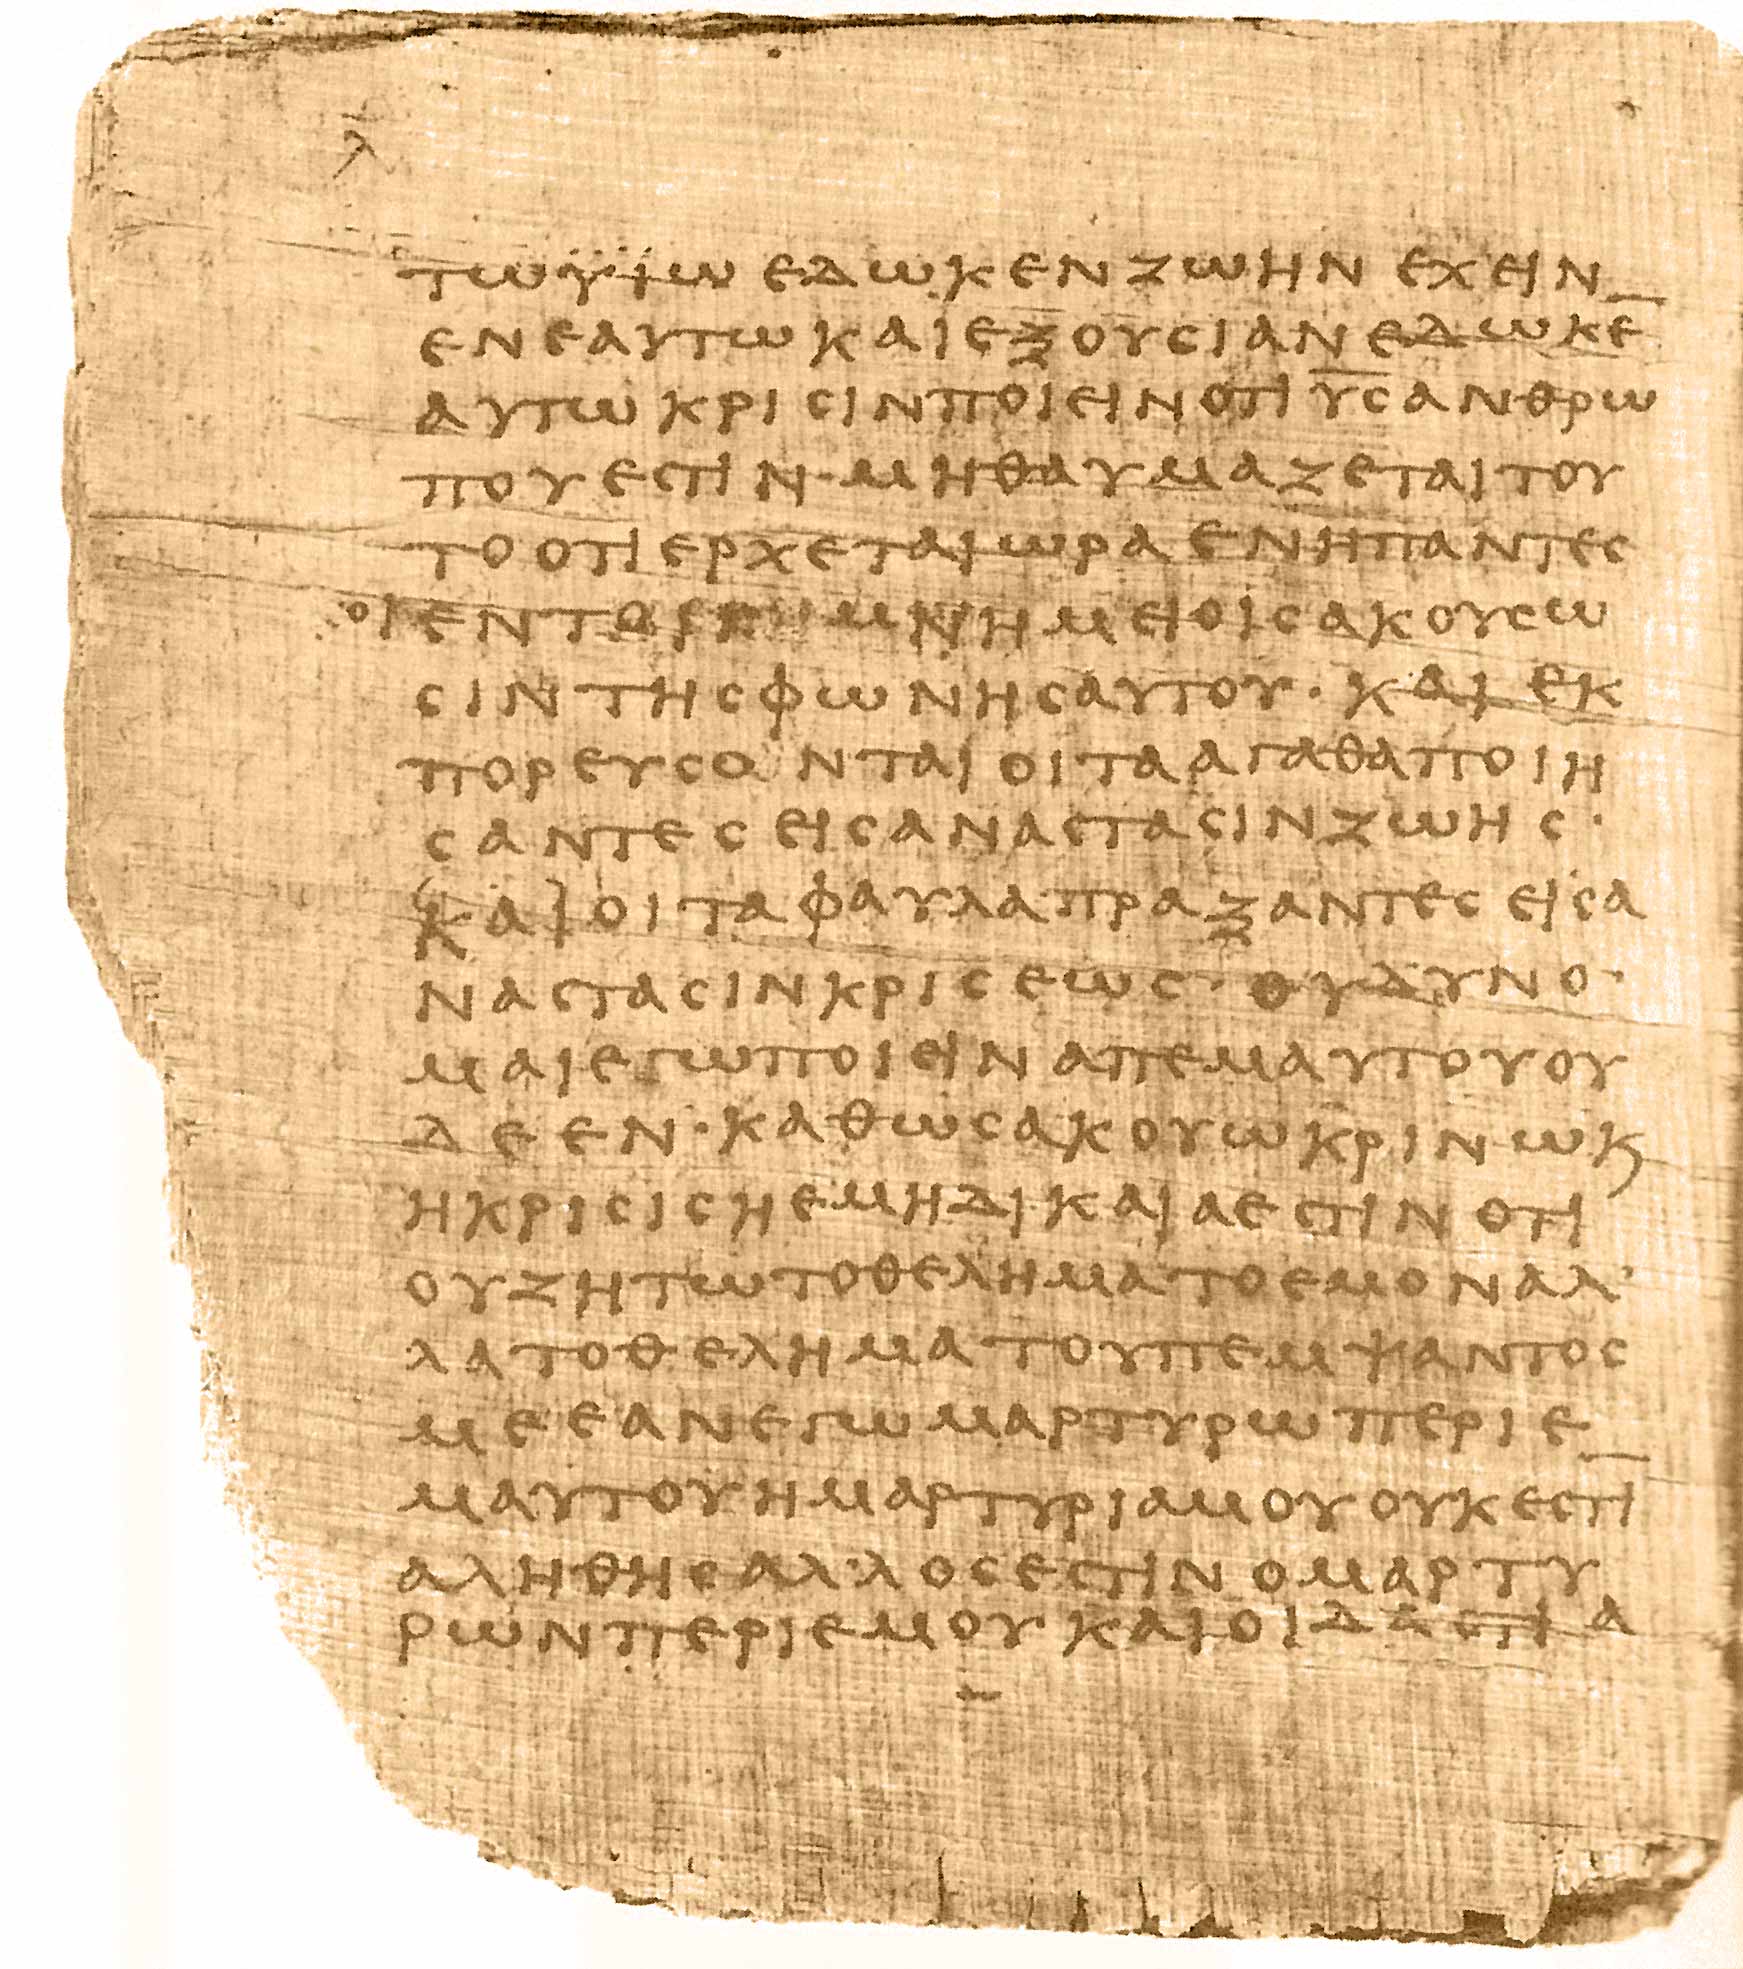 λ
τωϋϊωεδωκενζωηνεχειν
ενεαυτωκαιεξουσιανεδωκε
αυτωκρισινποιεινοτιυ̅σ̅ανθρω
πουεστιν·μηθαυμαζεταιτου
τοοτιερχεταιωραενηπαντες
οιεντ μνημειοισακουσω
σιντησφωνησαυτου·καιεκ
πορευσονταιοιτααγαθαποιη
σαντεσεισαναστασινζωησ·
καιοιταφαυλαπραξαντεσεισα
ναστασινκρισεωσ·ουδυνο·
μαιεγωποιειναπεμαυτουου
δεεν·καθωσακουωκρινωκ
ηκρισισηεμηδικαιαεστινοτι
ουζητωτοθεληματοεμοναλ’
λατοθεληματουπεμψαντοσ
μεεανεγωμαρτυρωπεριε
μαυτουημαρτυριαμουουκεστι
αληθησαλ’λοσεστινομαρτυ
ρωνπεριεμουκαιοιδα